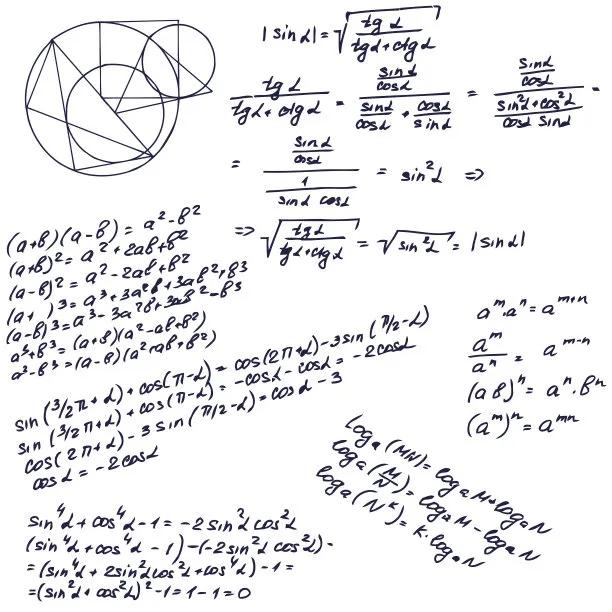 |sin α| = √(tg α / (tg α + ctg α))
tg α / (tg α + ctg α) = (sin α / cos α) / (sin α / cos α + cos α / sin α) = (sin α / cos α) / ((sin²α + cos²α) / (cos α sin α)) =
= (sin α / cos α) / (1 / (sin α cos α)) = sin²α ⇒
⇒ √(tg α / (tg α + ctg α)) = √(sin²α) = |sin α|
(a+b)(a-b) = a²-b²
(a+b)² = a²+2ab+b²
(a-b)² = a²-2ab+b²
(a+ )³ = a³+3a²b+3ab²+b³
(a-b)³ = a³-3a²b+3ab²-b³
a³+b³ = (a+b)(a²-ab+b²)
a³-b³ = (a-b)(a²+ab+b²)
sin(3/2π+α)+cos(π-α) = cos(2π+α)-3sin(π/2-α)
sin(3/2π+α)+cos(π-α) = -cos α - cos α = -2cos α
cos(2π+α)-3sin(π/2-α) = cos α - 3
cos α = -2cos α
aᵐ·aⁿ = aᵐ⁺ⁿ
aᵐ / aⁿ = aᵐ⁻ⁿ
(ab)ⁿ = aⁿ·bⁿ
(aᵐ)ⁿ = aᵐⁿ
logₐ(MN) = logₐM + logₐN
logₐ(M/N) = logₐM - logₐN
logₐ(Nᵏ) = k·logₐN
sin⁴α + cos⁴α - 1 = -2sin²α cos²α
(sin⁴α + cos⁴α - 1) - (-2sin²α cos²α) -
= (sin⁴α + 2sin²α cos²α + cos⁴α) - 1 =
= (sin²α + cos²α)² - 1 = 1 - 1 = 0